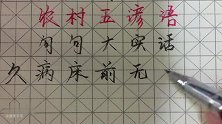 农村五谚语
句句大实话
久病床前无